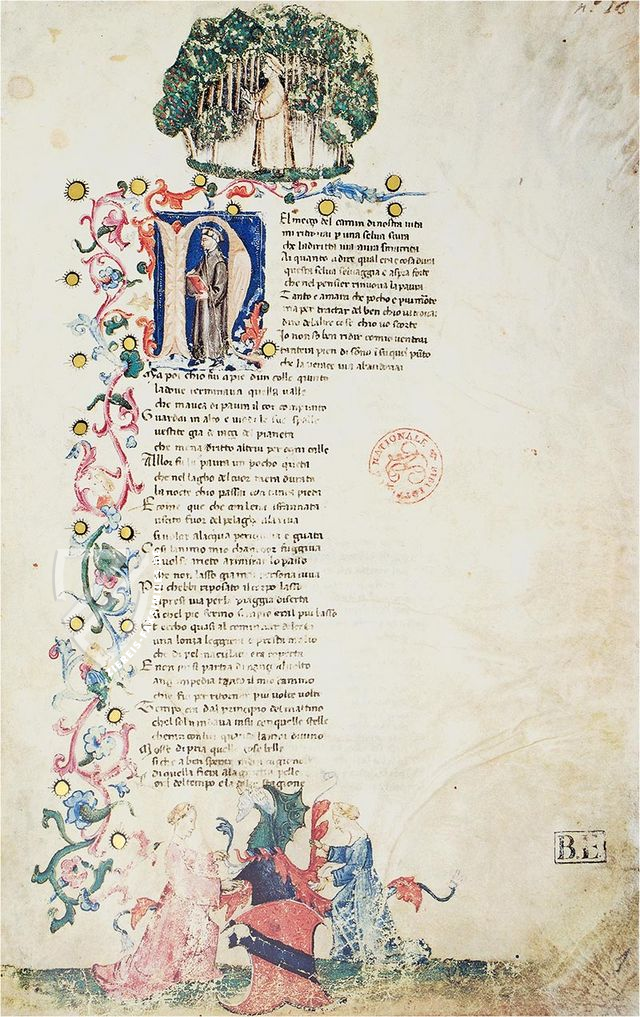 n.º 18
N
El meço del camin di nostra uita
mi ritrouai p una selua scura
che la diritta uia era smarrita
Ai quanto a dire qual era e cosa dura
questa selua seluaggia e aspra e forte
che nel pensier rinoua la paura
Tanto e amara che pocho e piu morte
ma per tractar del ben chio ui trouai
diro del altre cose chio uo scorte
Io non so ben ridir comio uentrai
tantera pien di sonno i su quel punto
che la uerace uia abandonai
Ma poi chio fui a pie dun colle giunto
la doue terminaua quella ualle
che mauea di paura il cor compunto
Guardai in alto e uidi le sue spalle
uestite gia di raggi del pianeta
che mena dritto altrui per ogni calle
Allor fu la paura un pocho queta
che nel lago del cuor mera durata
la nocte chio passai con tanta pieta
E come que che con lena affannata
uscito fuor del pelago a la riua
si uolge a lacqua perigliosa e guata
Cosi lanimo mio chancor fuggiua
si uolse arieto a rimirar lo passo
che non lasso gia mai persona uiua
Poi chebbi riposato il corpo lasso
ripresi uia per la piaggia diserta
si chel pie fermo sempre era l piu basso
Et eccho quasi al cominciar de lerta
una lonza leggiera e presta molto
che di pel maculato era coperta
E non mi si partia dinançi al uolto
anç impedia tanto il mio camino
chio fui per ritornar piu uolte uolto
Tempo era dal principio del mattino
chel sol montaua insu con quelle stelle
cheran con lui quando lamor diuino
Mosse di pria quelle cose belle
si che a ben sperar mera cagione
di quella fiera a la gaetta pelle
lora del tempo e la dolce stagione
NATIONALE
B.E